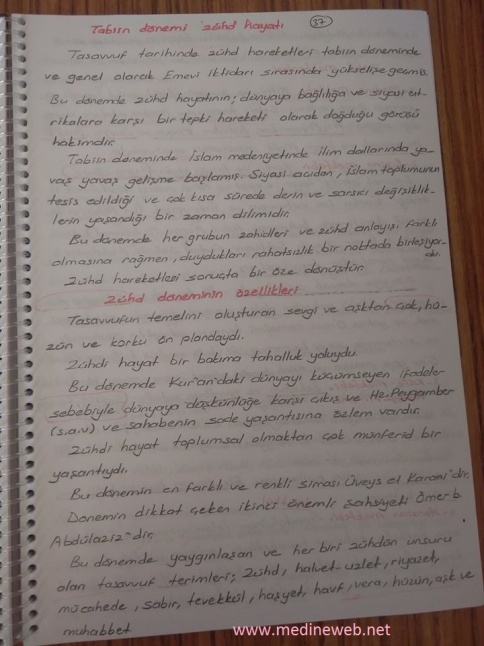 Tabiin dönemi zühd hayatı 37
Tasavvuf tarihinde zühd hareketleri tabiin döneminde
ve genel olarak Emevi iktidarı sırasında yükselişe geçmiş.
Bu dönemde zühd hayatının; dünyaya bağlılığa ve siyasi ent-
rikalara karşı bir tepki hareketi olarak doğduğu görüşü
hakimdir.
Tabiin döneminde İslam medeniyetinde ilim dallarında ya-
vaş yavaş gelişme başlamış. Siyasi açıdan, İslam toplumunun
tesis edildiği ve çok kısa sürede derin ve sarsıcı değişiklik-
lerin yaşandığı bir zaman dilimidir.
Bu dönemde her grubun zahidleri ve zühd anlayışı farklı
olmasına rağmen, duydukları rahatsızlık bir noktada birleşiyor-
du.
Zühd hareketleri sonuçta bir öze dönüştür.
Zühd döneminin özellikleri
Tasavvufun temelini oluşturan sevgi ve aşktan çok, hü-
zün ve korku ön plandaydı.
Zühdi hayat bir bakıma tahalluk yoluydu.
Bu dönemde Kur'an'daki dünyayı küçümseyen ifadeler
sebebiyle dünyaya düşkünlüğe karşı çıkış ve Hz. Peygamber
(s.a.v) ve sahabenin sade yaşantısına özlem vardır.
Zühdi hayat toplumsal olmaktan çok münferid bir
yaşantıydı.
Bu dönemin en farklı ve renkli siması Üveys el Karani'dir.
Dönemin dikkat çeken ikinci önemli şahsiyeti Ömer b.
Abdülaziz'dir.
Bu dönemde yaygınlaşan ve her biri zühdün unsuru
olan tasavvuf terimleri; Zühd, halvet-uzlet, riyazet,
mücahede, sabır, tevekkül, haşyet, havf, vera, hüzün, aşk ve
muhabbet
www.medineweb.net